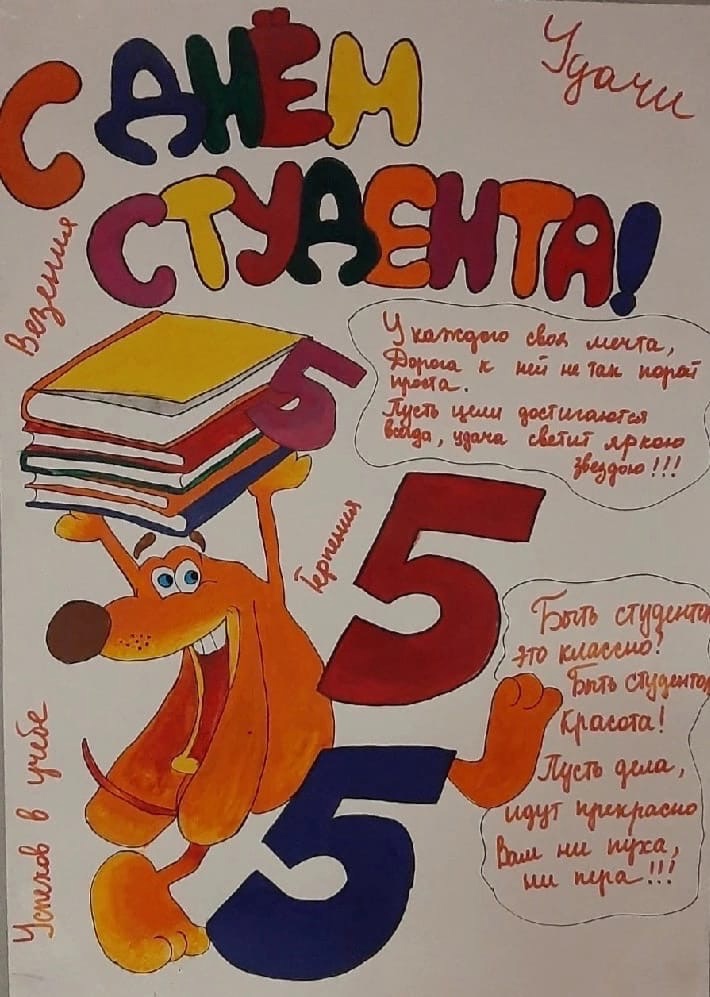 С ДНЁМ
СТУДЕНТА!
Удачи
Везения
У каждого своя мечта,
Дорога к ней не так порой
проста.
Пусть цели достигаются
всегда, удача светит яркою
звездою!!!
5
5
5
Терпения
Быть студентом
это классно!
Быть студентом
красота!
Пусть дела,
идут прекрасно
Вам ни пуха,
ни пера!!!
Успехов в учебе